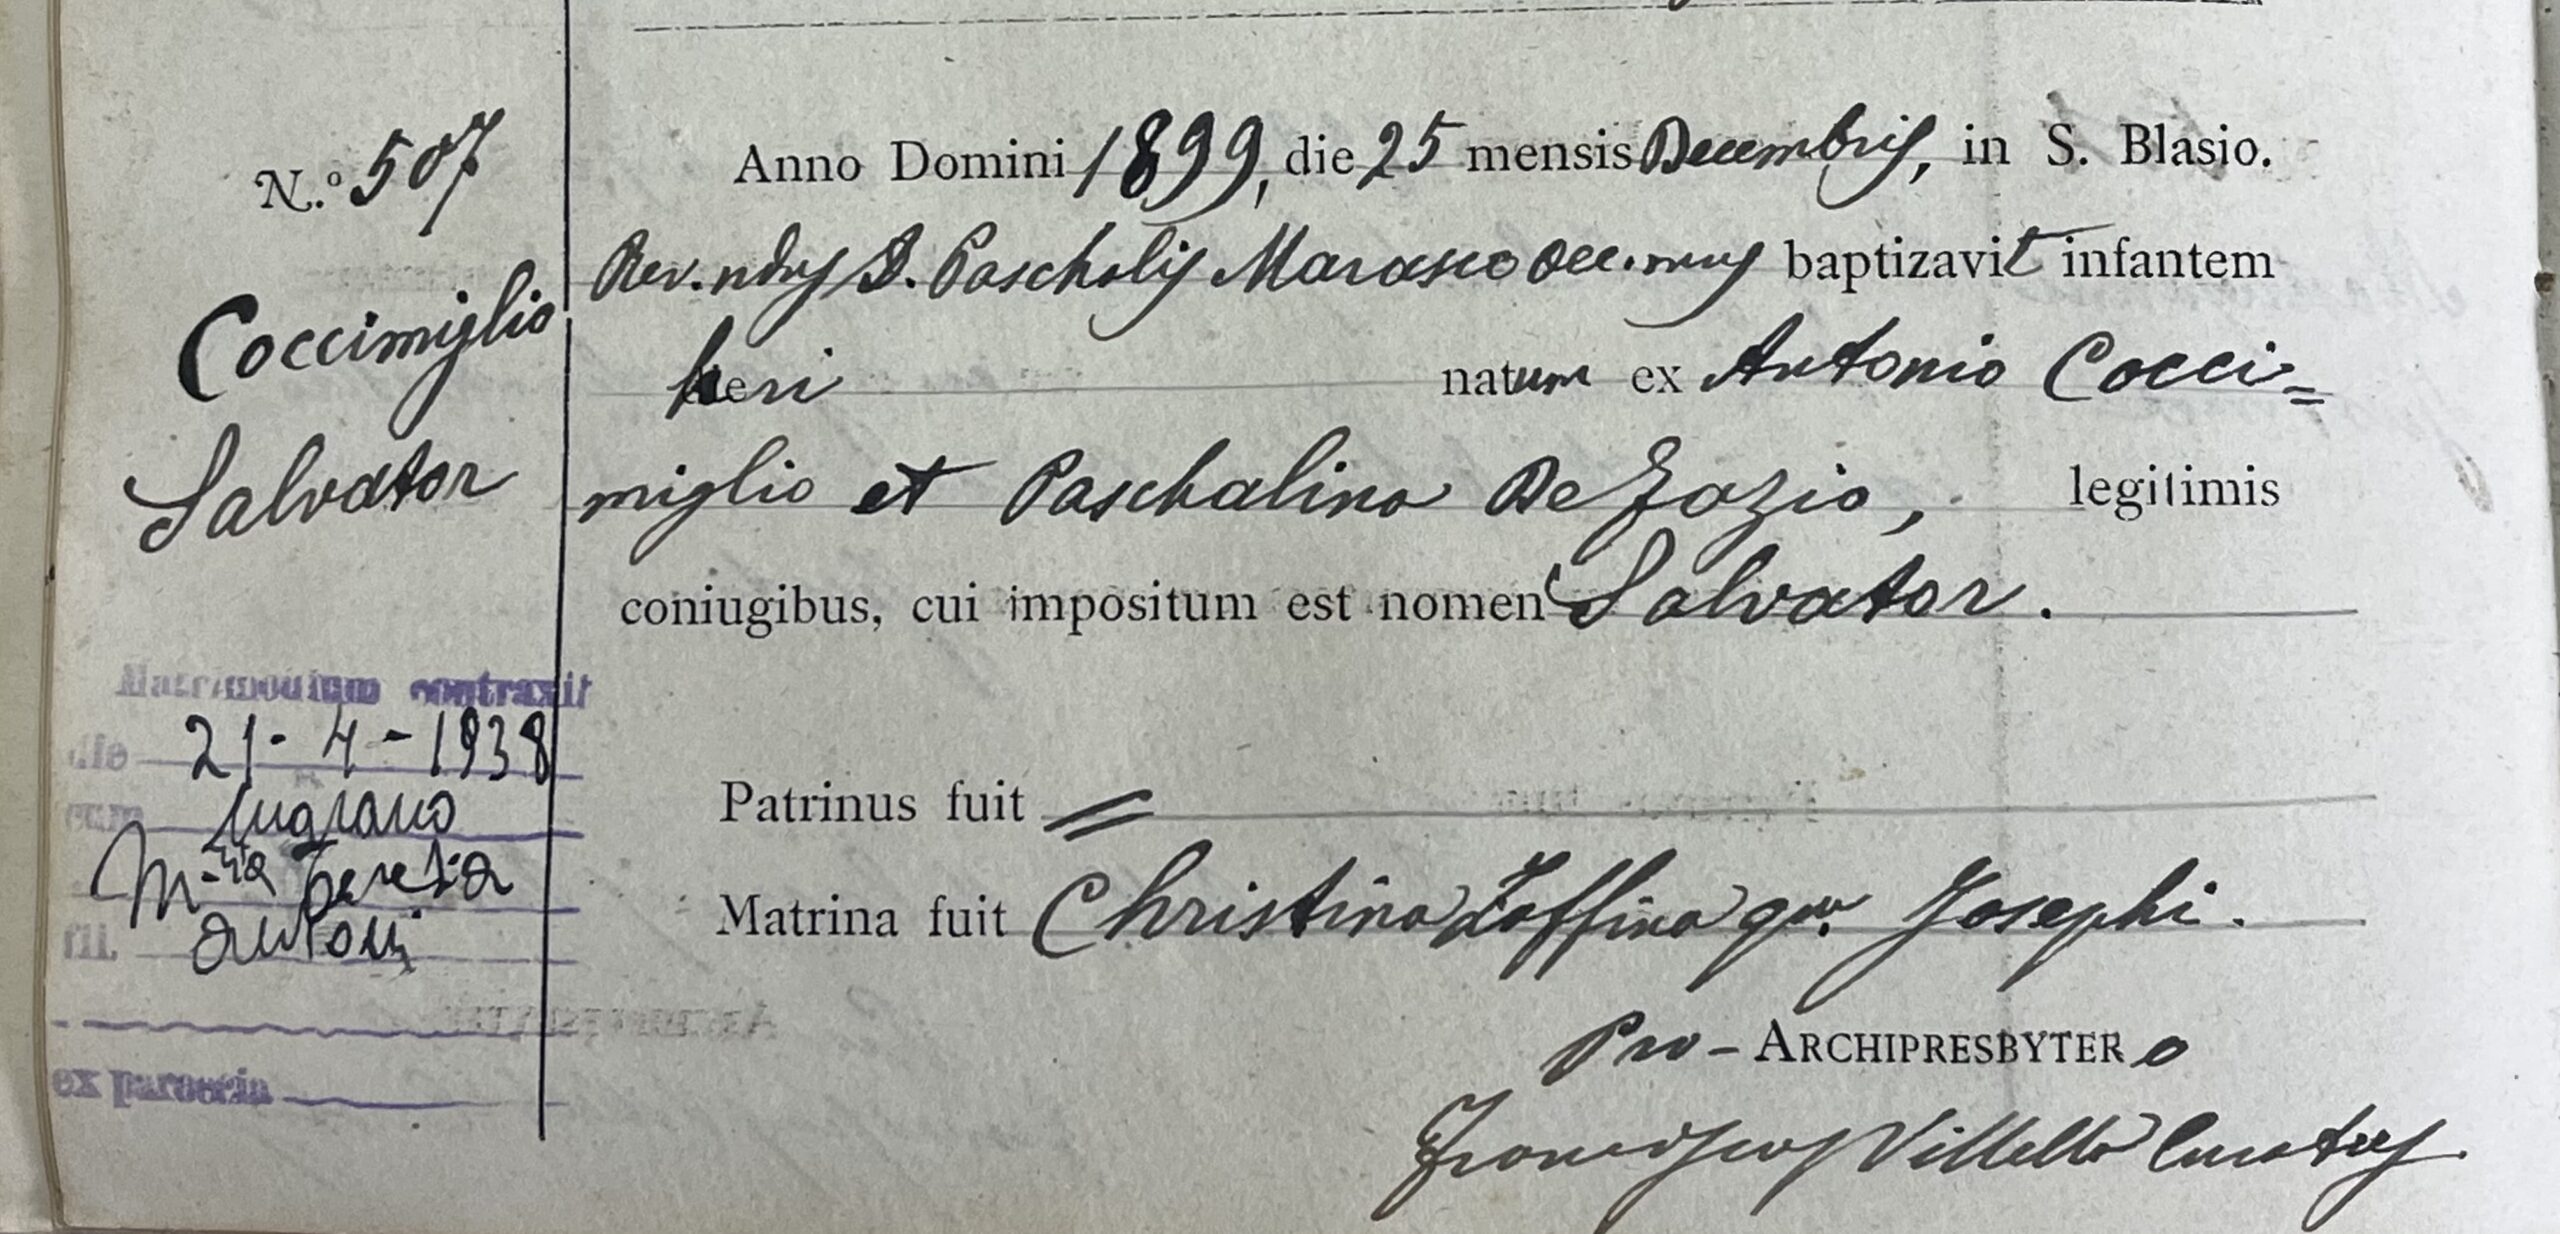 N.º 507
Coccimiglio
Salvator
Anno Domini 1899, die 25 mensis Decembris, in S. Blasio.
Rev.ndus D. Paschalis Marasco Oec.mus baptizavit infantem
heri natum ex Antonio Cocci=
miglio et Paschalina De Fazio, legitimis
coniugibus, cui impositum est nomen Salvator.
Patrinus fuit =
Matrina fuit Christina Zaffina qm. Josephi.
Pro-ARCHIPRESBYTERo
Franciscus Villella Curatus
Matrimonium contraxit
die 21-4-1938
cum
M-ria Teresa
fil. Antonii
ex paroecia